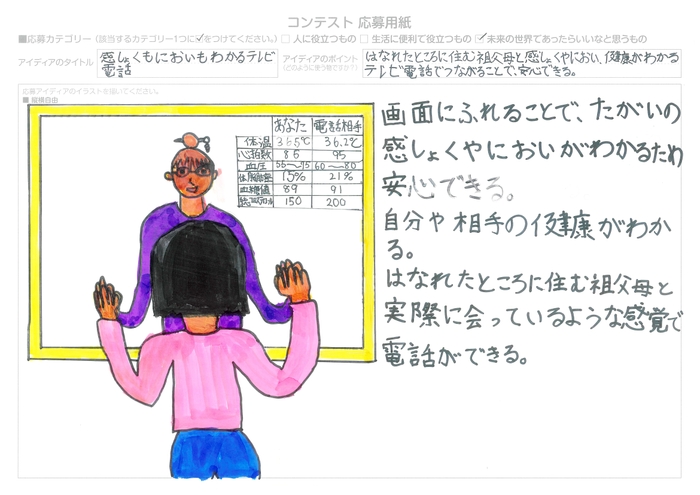 コンテスト 応募用紙
■応募カテゴリー（該当するカテゴリー1つに✓をつけてください。） □ 人に役立つもの □ 生活に便利で役立つもの ☑ 未来の世界であったらいいなと思うもの
アイディアのタイトル
感しょくもにおいもわかるテレビ
電話
アイディアのポイント
（どのように使う物ですか？）
はなれたところに住む祖父母と感しょくやにおい、健康がわかる
テレビ電話でつながることで、安心できる。
応募アイディアのイラストを描いてください。
■ 縦横自由
あなた 電話相手
体温 36.5℃ 36.2℃
心拍数 85 95
血圧 55〜75 60〜80
体脂肪量 15% 21%
血糖値 89 91
150 200
画面にふれることで、たがいの
感しょくやにおいがわかるため
安心できる。
自分や相手の健康がわか
る。
はなれたところに住む祖父母と
実際に会っているような感覚で
電話ができる。